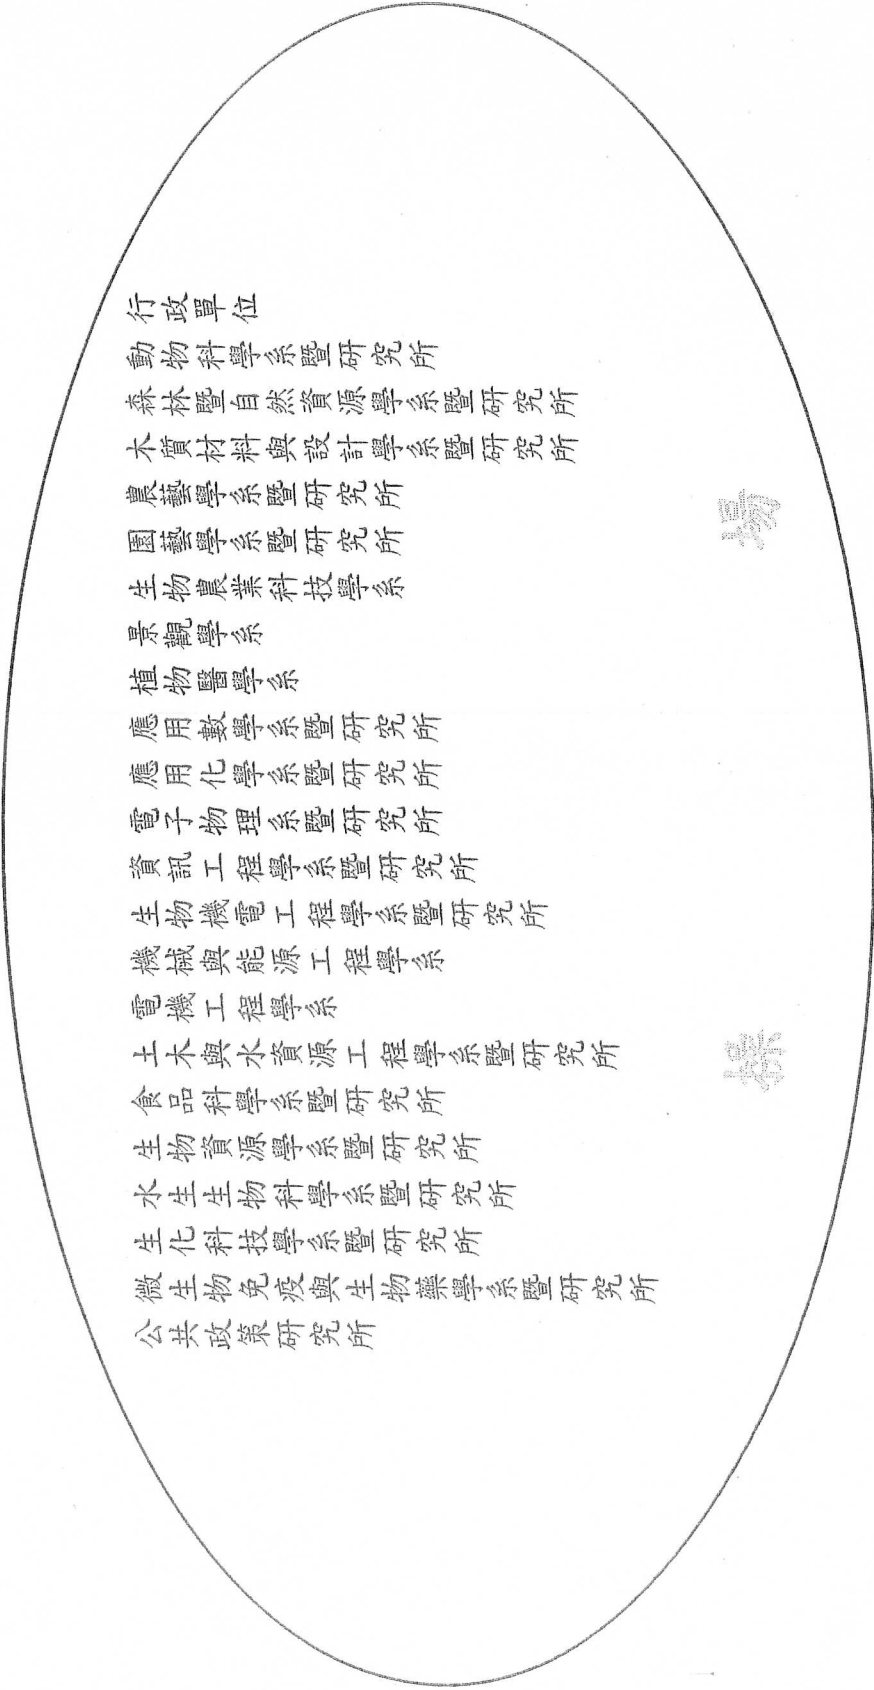 行政單位
動物科學系暨研究所
森林暨自然資源學系暨研究所
木質材料與設計學系暨研究所
農藝學系暨研究所
園藝學系暨研究所
生物農業科技學系
景觀學系
植物醫學系
應用數學系暨研究所
應用化學系暨研究所
電子物理系暨研究所
資訊工程學系暨研究所
生物機電工程學系暨研究所
機械與能源工程學系
電機工程學系
土木與水資源工程學系暨研究所
食品科學系暨研究所
生物資源學系暨研究所
水生生物科學系暨研究所
生化科技學系暨研究所
微生物免疫與生物藥學系暨研究所
公共政策研究所
操場